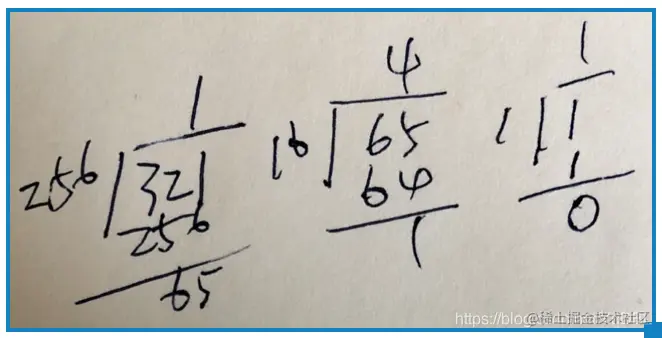 1
256 321
256
65
4
16 65
64
1
1
1 1
1
0
https://blog.
@稀土掘金技术社区